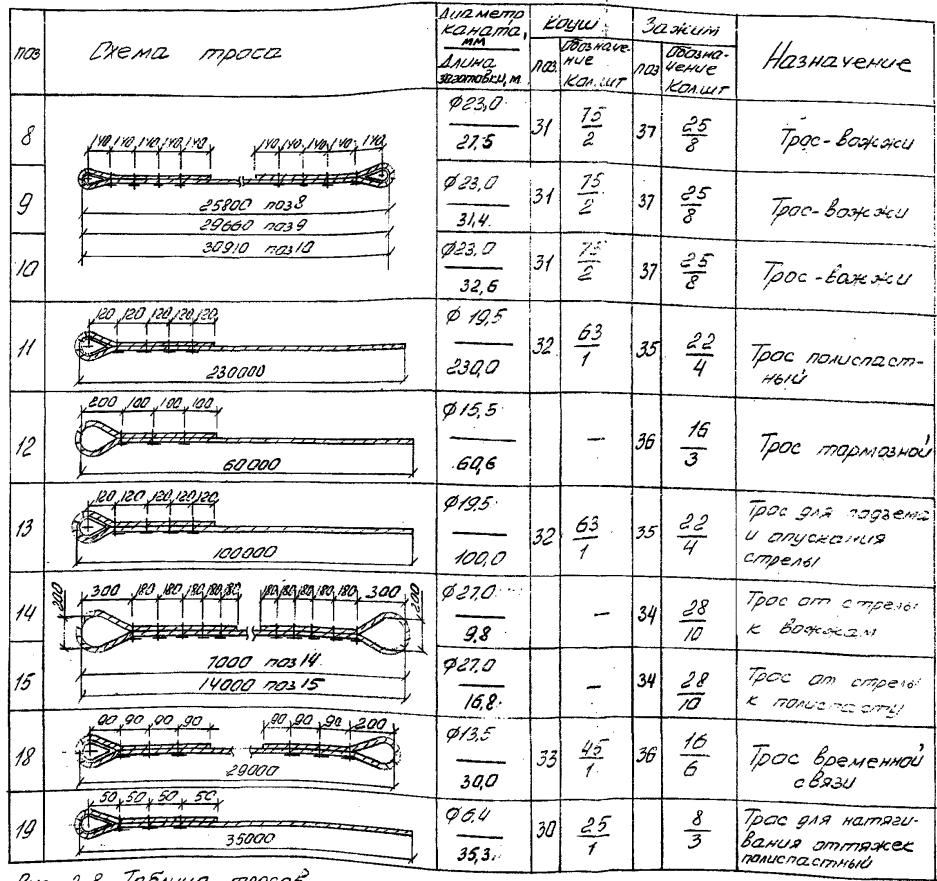 поз
Схема троса
Диаметр каната, мм
Длина заготовки, м
Коуш
поз.
Обозначение
Кол.шт
Зажим
поз
Обозначение
Кол.шт
Назначение
8
140 140 140 140 140
140 140 140 140 140
25800 поз 8
29660 поз 9
30910 поз 10
ϕ23,0
27.5
31
75
2
37
25
8
Трос-вожжи
9
ϕ23,0
31,4
31
75
2
37
25
8
Трос-вожжи
10
ϕ23,0
32,6
31
75
2
37
25
8
Трос-вожжи
11
120 120 120 120 120
230000
ϕ 19,5
230,0
32
63
1
35
22
4
Трос полиспаст-
ный
12
200 100 100 100
60000
ϕ15,5
60,6
—
36
16
3
Трос тормозной
13
120 120 120 120 120
100000
ϕ19,5
100,0
32
63
1
35
22
4
Трос для подъема
и опускания
стрелы
14
200
300 180 180 180 180 180
180 180 180 180 180 300
200
7000 поз 14
14000 поз 15
ϕ27,0
9.8
—
34
28
10
Трос от стрелы
к вожжам
15
ϕ27,0
16,8
—
34
28
10
Трос от стрелы
к полиспасту
18
90 90 90 90
90 90 90 200
29000
ϕ13,5
30,0
33
45
1
36
16
6
Трос временной
связи
19
50 50 50 50
35000
ϕ6,4
35,3
30
25
1
8
3
Трос для натяги-
вания оттяжек
полиспастный
Рис. 2.8 Таблица тросов